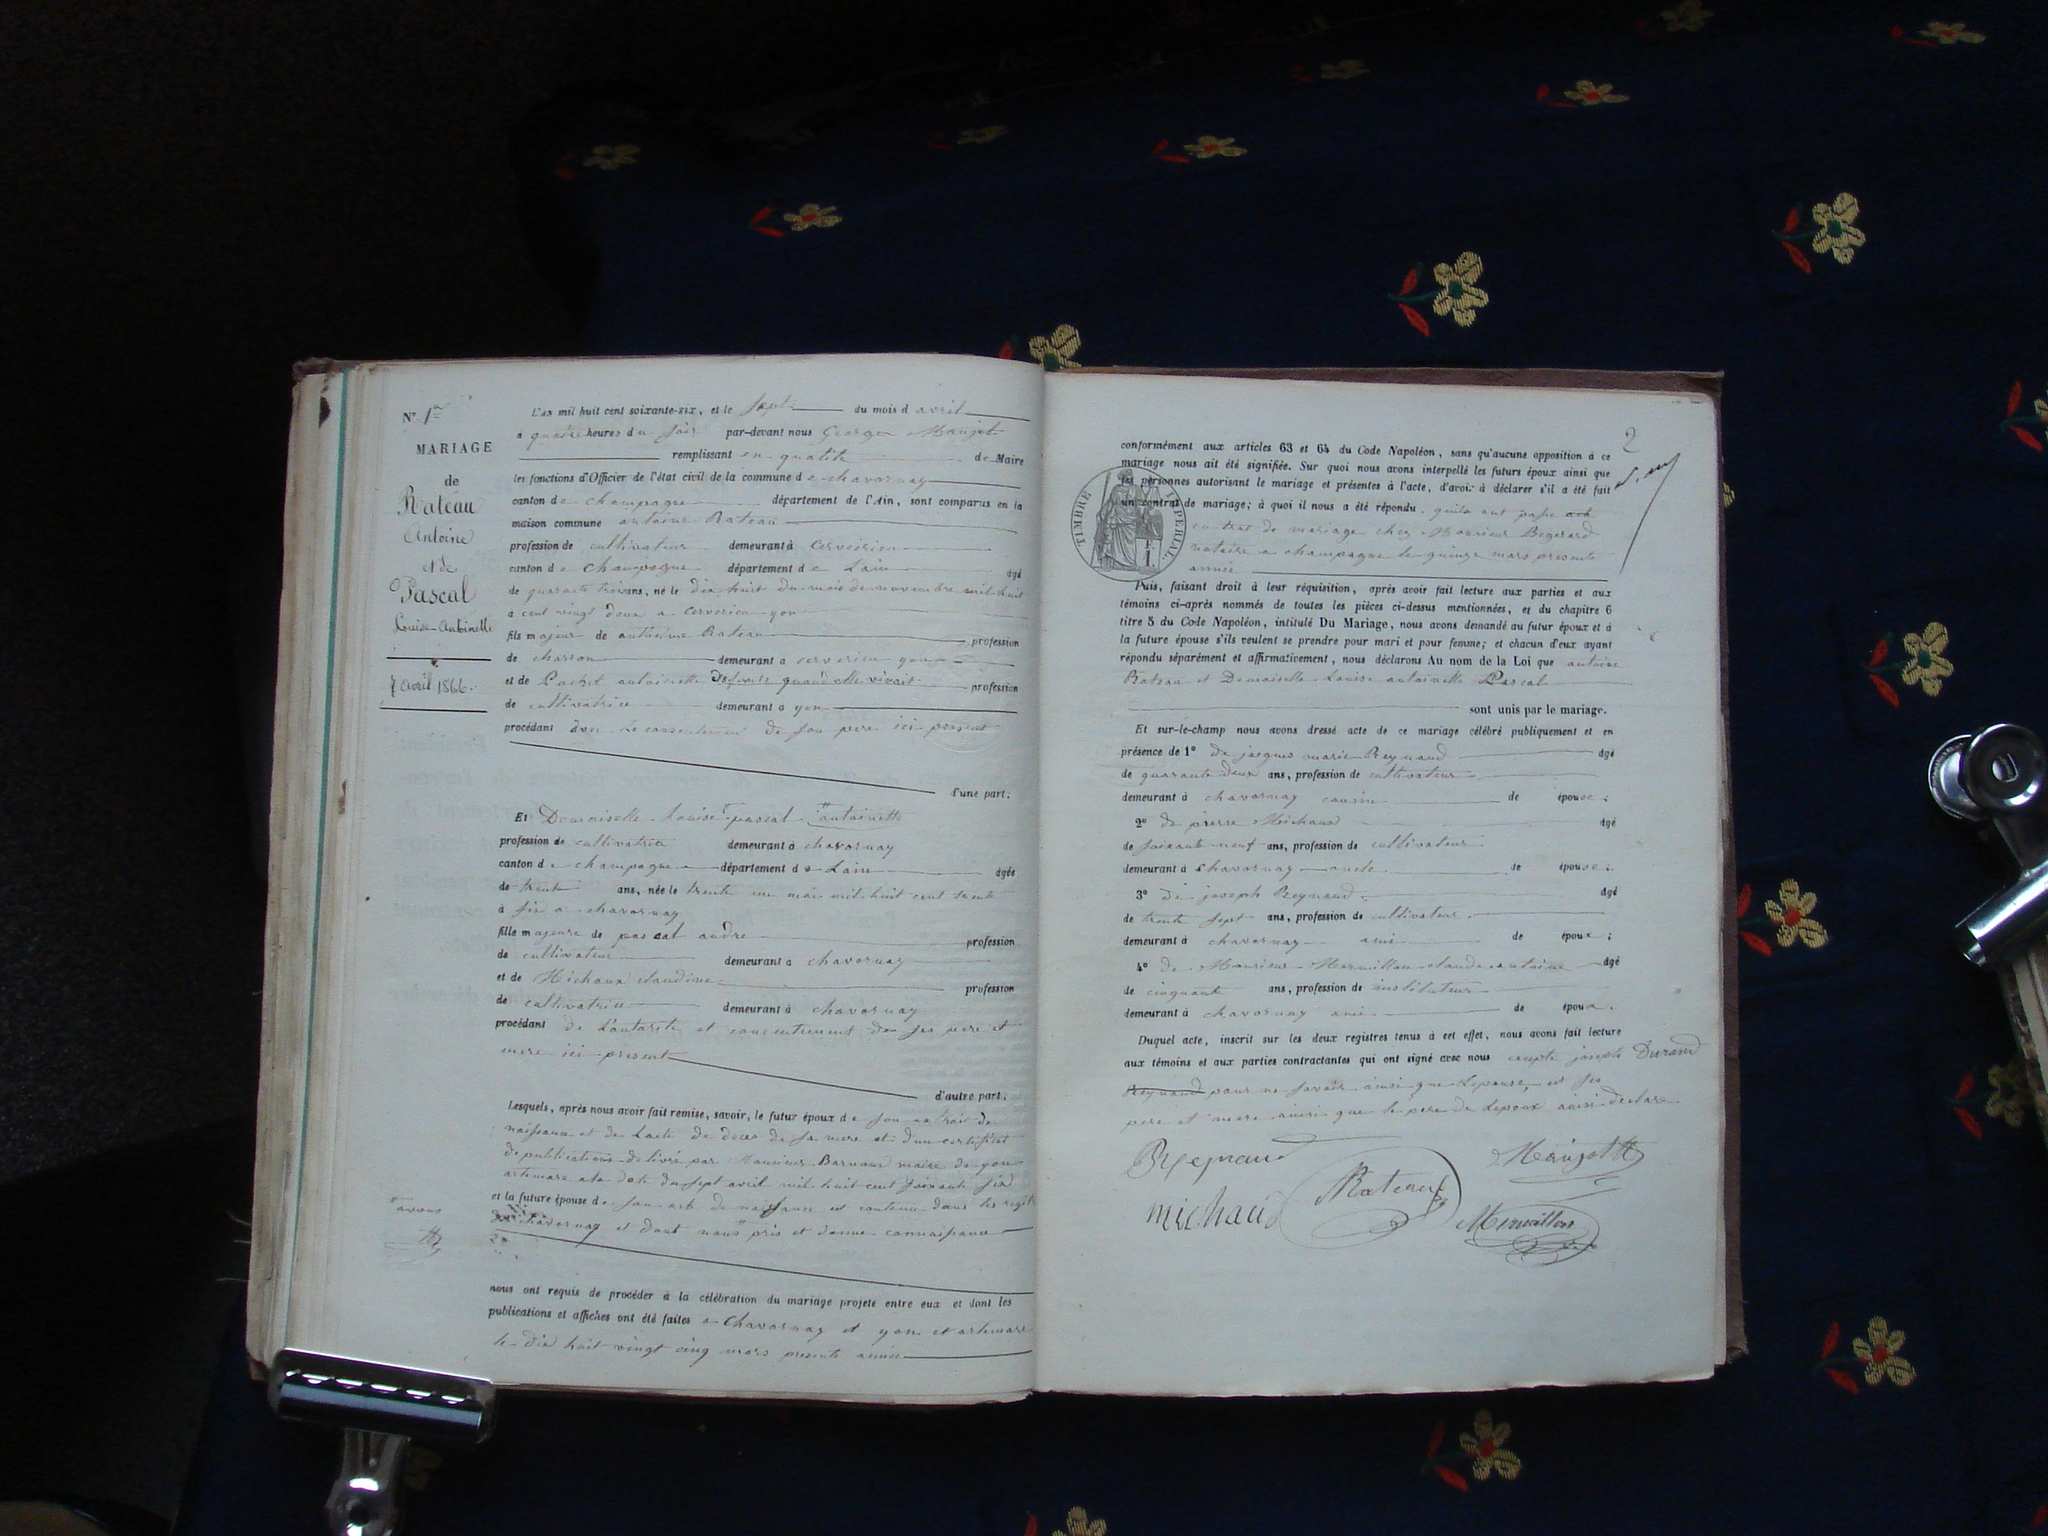 N° 1er
MARIAGE
de
Rateau
Antoine
et de
Pascal
Louise Antoinette
7 avril 1866.
L'an mil huit cent soixante-six, et le sept du mois d avril
a quatre heures du soir par-devant nous George
remplissant en qualité de Maire
les fonctions d'Officier de l'état civil de la commune de chavornay
canton de champagne département de l'Ain, sont comparus en la
maison commune antoine Rateau
profession de cultivateur demeurant à cerveirieu
canton de champagne département de Lain âgé
de quarante trois ans, né le dix huit du mois de novembre mil huit
cent vingt deux a cerveirieu yon
fils majeur de antoine Rateau profession
de charron demeurant a cerveirieu yon
et de antoinette defunte quand elle vivait profession
de cultivatrice demeurant a yon
procédant avec le consentement de son pere ici present
d'une part;
Et Demoiselle Louise pascal antoinette
profession de cultivatrice demeurant à chavornay
canton de champagne département de Lain âgée
de trente ans, née le trente un mai mil huit cent trente
six a chavornay
fille majeure de pascal andre profession
de cultivateur demeurant a chavornay
et de Michaux claudine profession
de cultivatrice demeurant à chavornay
procédant de et de ses pere et
mere ici present
d'autre part.
Lesquels, après nous avoir fait remise, savoir, le futur époux de son extrait de
naissance et de Lacte de deces de sa mere et dun certificat
de publications delivré par Monsieur Barnaud maire de yon
artemare a la date du sept avril mil huit cent soixante six
et la future épouse de son acte de naissance est contenu dans les
chavornay et dont nous pris et donné connaissance
avons
nous ont requis de procéder à la célébration du mariage projeté entre eux et dont les
publications et affiches ont été faites a Chavornay et yon et artemare
le dix huit vingt cinq mars presente année
2
conformément aux articles 63 et 64 du Code Napoléon, sans qu'aucune opposition à ce
mariage nous ait été signifiée. Sur quoi nous avons interpellé les futurs époux ainsi que
les personnes autorisant le mariage et présentes à l'acte, d'avoir à déclarer s'il a été fait
un contrat de mariage; à quoi il nous a été répondu quils ont passé
contrat de mariage chez Monsieur
notaire a champagne le quinze mars presente
année
TIMBRE IMPÉRIAL
Puis, faisant droit à leur réquisition, après avoir fait lecture aux parties et aux
témoins ci-après nommés de toutes les pièces ci-dessus mentionnées, et du chapitre 6
titre 5 du Code Napoléon, intitulé Du Mariage, nous avons demandé au futur époux et à
la future épouse s'ils veulent se prendre pour mari et pour femme; et chacun d'eux ayant
répondu séparément et affirmativement, nous déclarons Au nom de la Loi que antoine
Rateau et Demoiselle Louise antoinette Pascal
sont unis par le mariage.
Et sur-le-champ nous avons dressé acte de ce mariage célébré publiquement et en
présence de 1° de jacques marie Reynaud âgé
de quarante deux ans, profession de cultivateur
demeurant à chavornay cousin de épouse;
2° de pierre Michaud âgé
de soixante neuf ans, profession de cultivateur
demeurant à chavornay oncle de épouse;
3° de joseph Reynaud âgé
de trente sept ans, profession de cultivateur
demeurant à chavornay ami de époux;
4° de Monsieur Mermillon claude antoine âgé
de cinquante ans, profession de instituteur
demeurant à chavornay ami de époux.
Duquel acte, inscrit sur les deux registres tenus à cet effet, nous avons fait lecture
aux témoins et aux parties contractantes qui ont signé avec nous excepté joseph Durand
Reynaud pour ne savoir ainsi que Lepouse, et ses
pere et mere ainsi que le pere de Lepoux ainsi declaré
Reynaud
Rateau
michaud
Mermillon